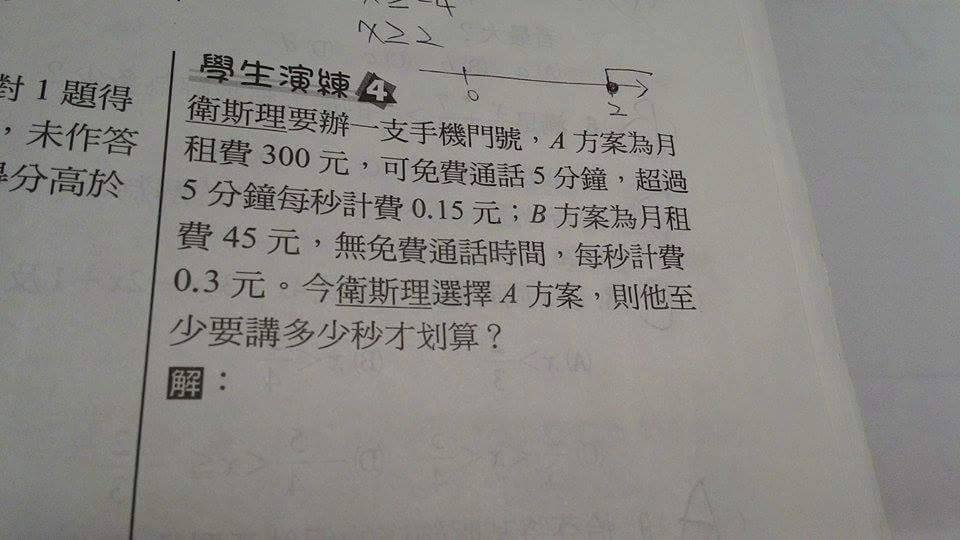 x≥-4
x≥2
0
2
對 1 題得
，未作答
得分高於
學生演練 4
衛斯理要辦一支手機門號，A 方案為月
租費 300 元，可免費通話 5 分鐘，超過
5 分鐘每秒計費 0.15 元；B 方案為月租
費 45 元，無免費通話時間，每秒計費
0.3 元。今衛斯理選擇 A 方案，則他至
少要講多少秒才划算？
解：